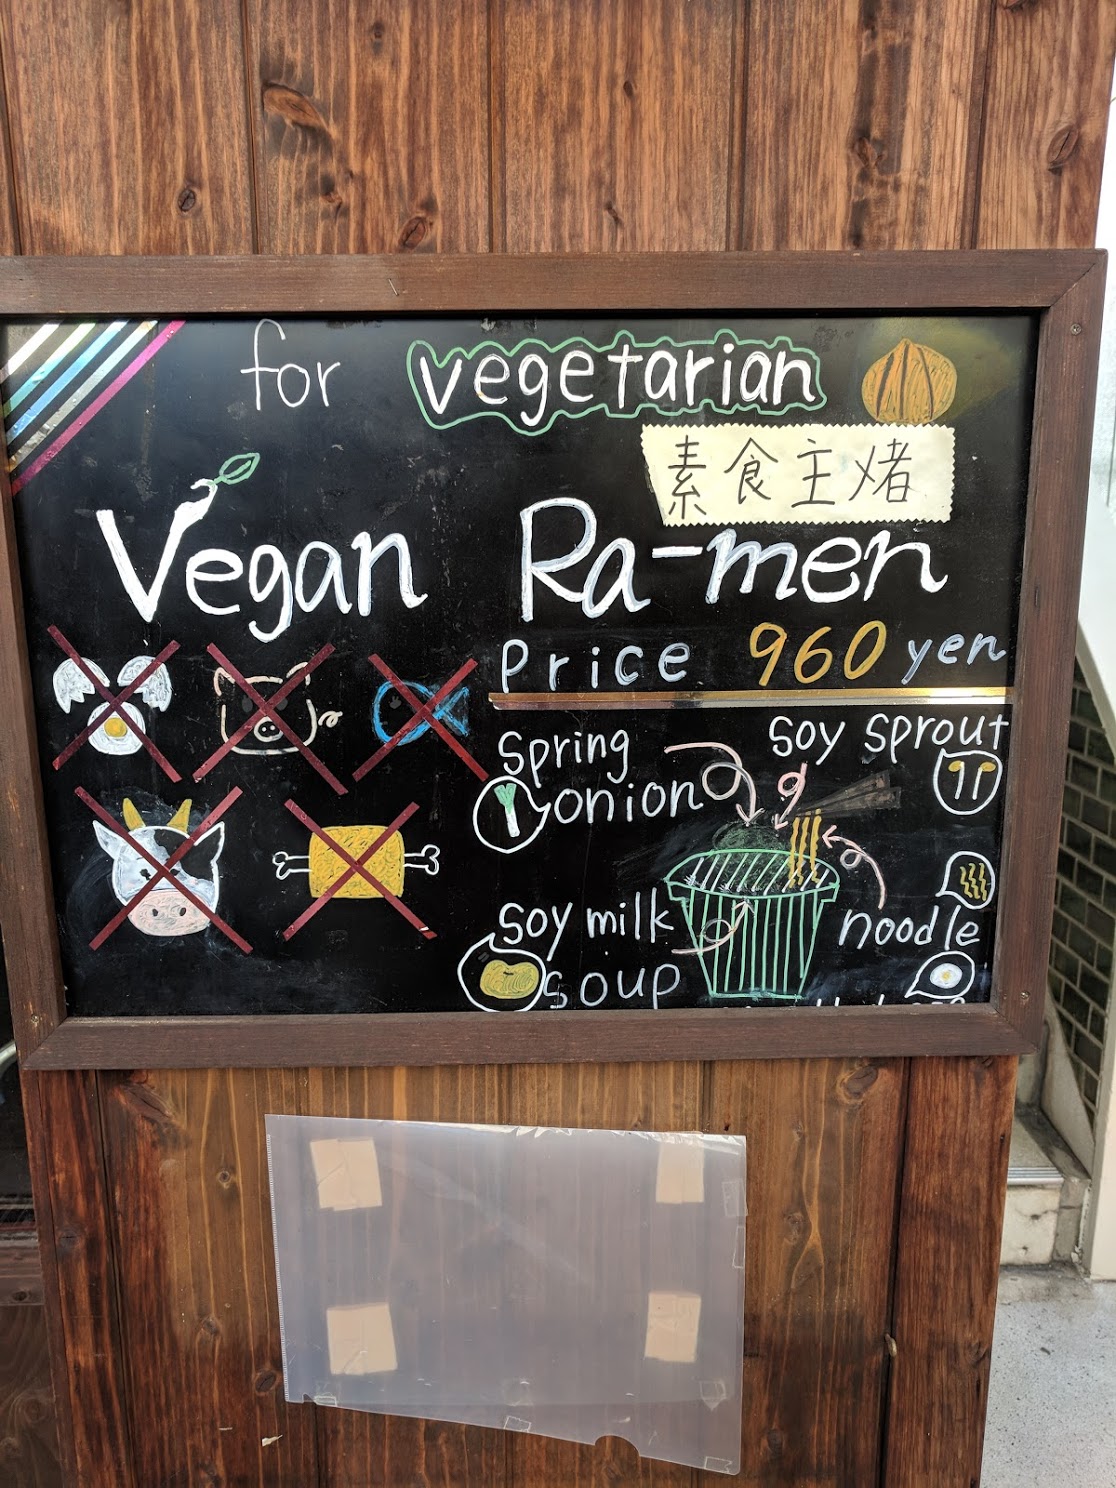 for vegetarian
素食主メ者
Vegan Ra-men
Price 960 yen
spring
onion
soy sprout
soy milk
soup
noodle